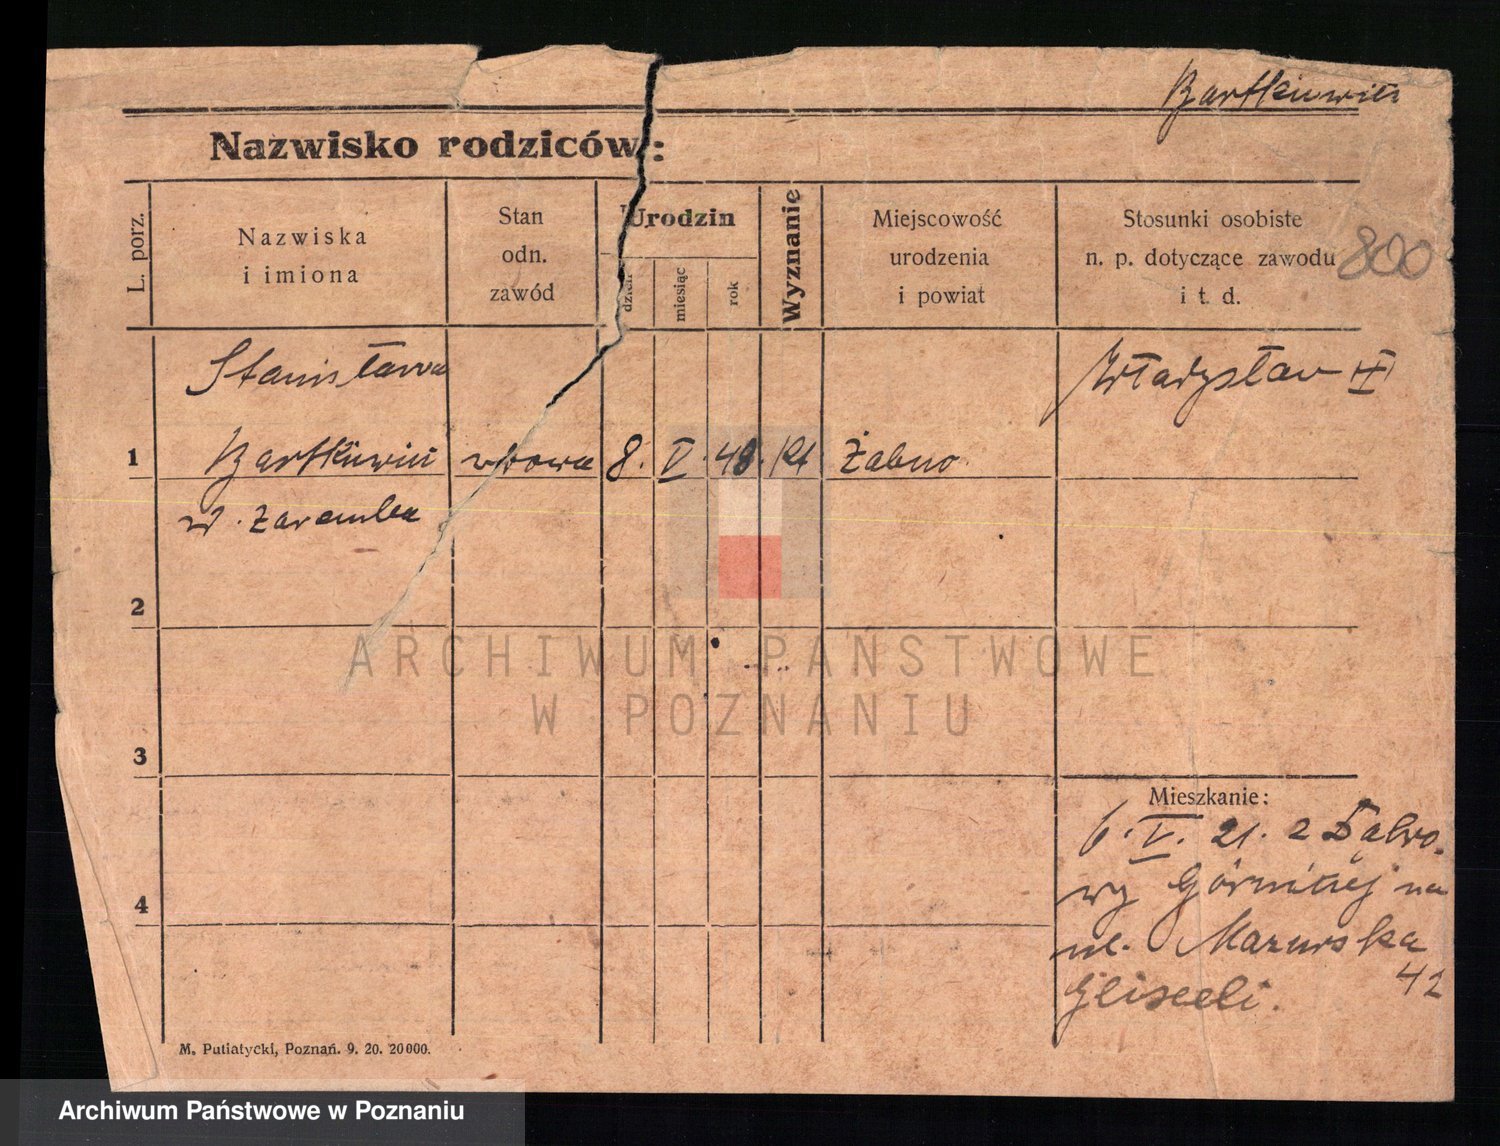 Bartkiewicz
Nazwisko rodziców:
L. porz.
Nazwiska
i imiona
Stan
odn.
zawód
Urodzin
dzień
miesiąc
rok
Wyznanie
Miejscowość
urodzenia
i powiat
Stosunki osobiste
n. p. dotyczące zawodu
i t. d.
800
Stanisława
Władysław
1 Bartkiewicz wdowa 8. V. 48. Kt Żabno
w. Zaremba
2
3
4
Mieszkanie:
6. V. 21. z Dąbro.
wy Górniczej na
ul. Mazurska
42
M. Putiatycki, Poznań. 9. 20. 20000.
ARCHIWUM PAŃSTWOWE
W POZNANIU
Archiwum Państwowe w Poznaniu